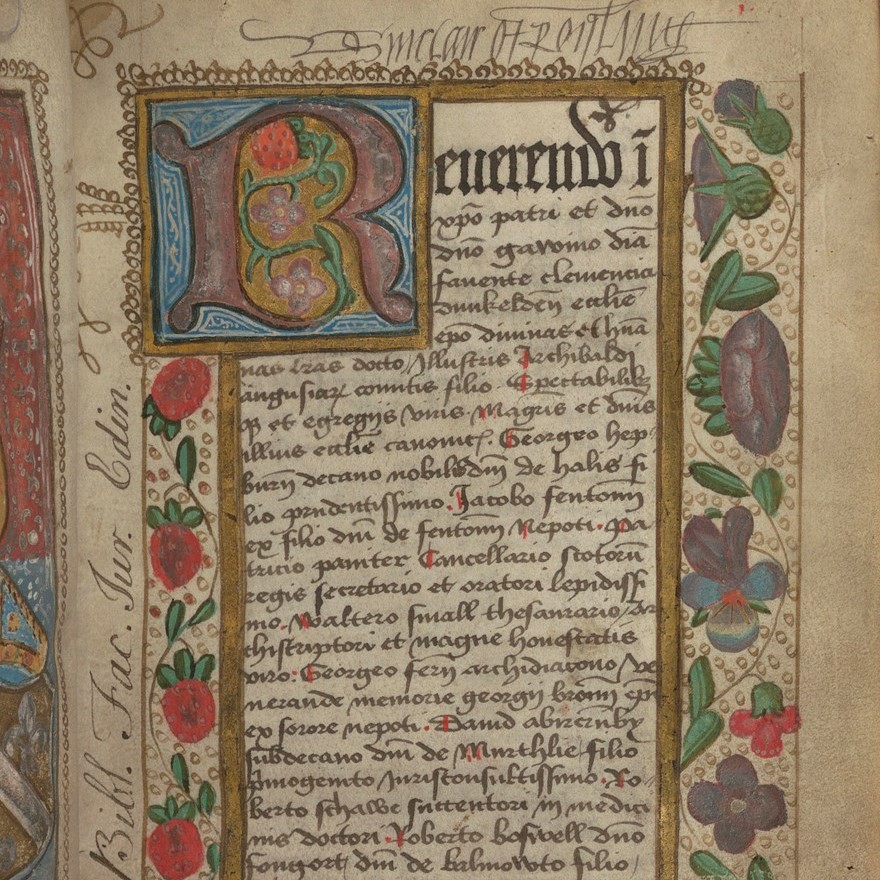 Sinclar of Roslling
Reuerendo ī
xpō patri et dnō
dnō gawino diā
fauente clemencia
dunkelden ecclie
epō diuinas et hūa
nas lras docto, Illustris Archibaldi
angusiar comitis filio. Spectabilibz
qz et egregijs viris. Magris et dnis
illius ecclie canonic. Georgeo hep
burn decano nobilis dni de halis fi
lio prudentissimo. Jacobo fentoun
ex filio dni de fentoun Nepoti. Pa
tricio panıter Cancellario scotorū
regis secretario et oratori lepidissi
mo. Waltero small thesaurario, ar
chiscriptori et magne honestatis
viro: Georgeo fern archidiacono, ve
nerande memorie georgij broun epi
ex sorore nepoti. Dauid abircruby
subdecano dni de Murthlie filio
primogenito Jurisconsultissimo. Ro
berto schawe succentori in medici
nis doctori. Roberto boswell dnō
fongort, dni de balmowto filio,
Bibl. Fac. Jur. Edin.